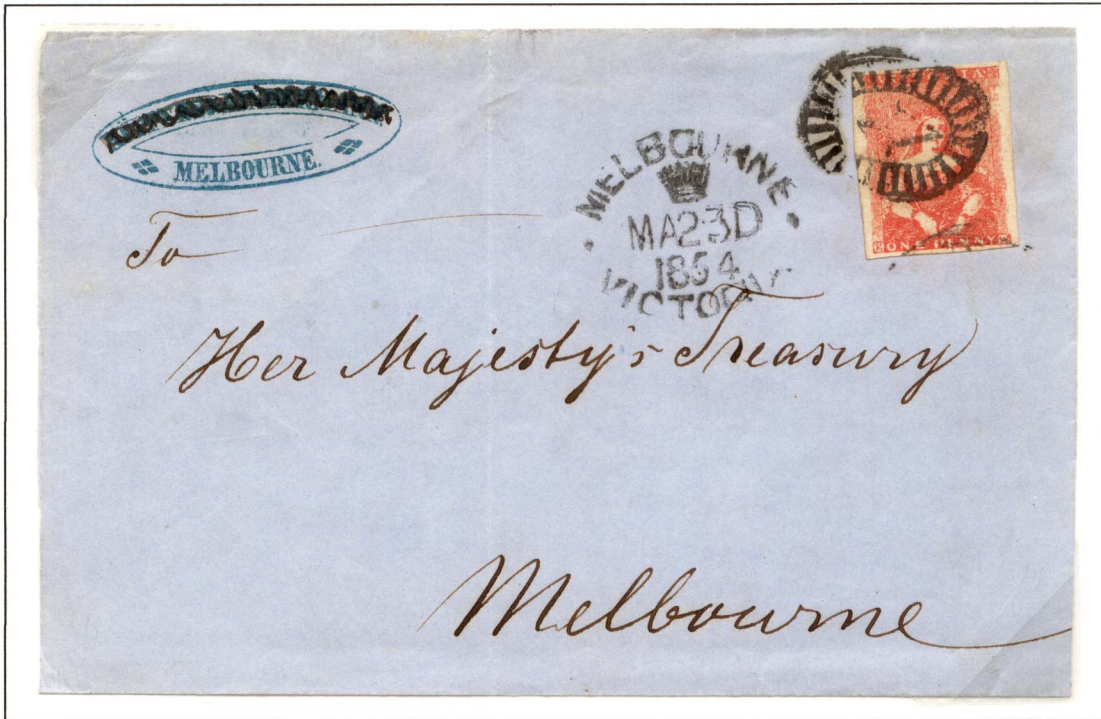 MELBOURNE
MELBOURNE
MA23D
1854
VICTORIA
ONE PENNY
To
Her Majesty's Treasury
Melbourne